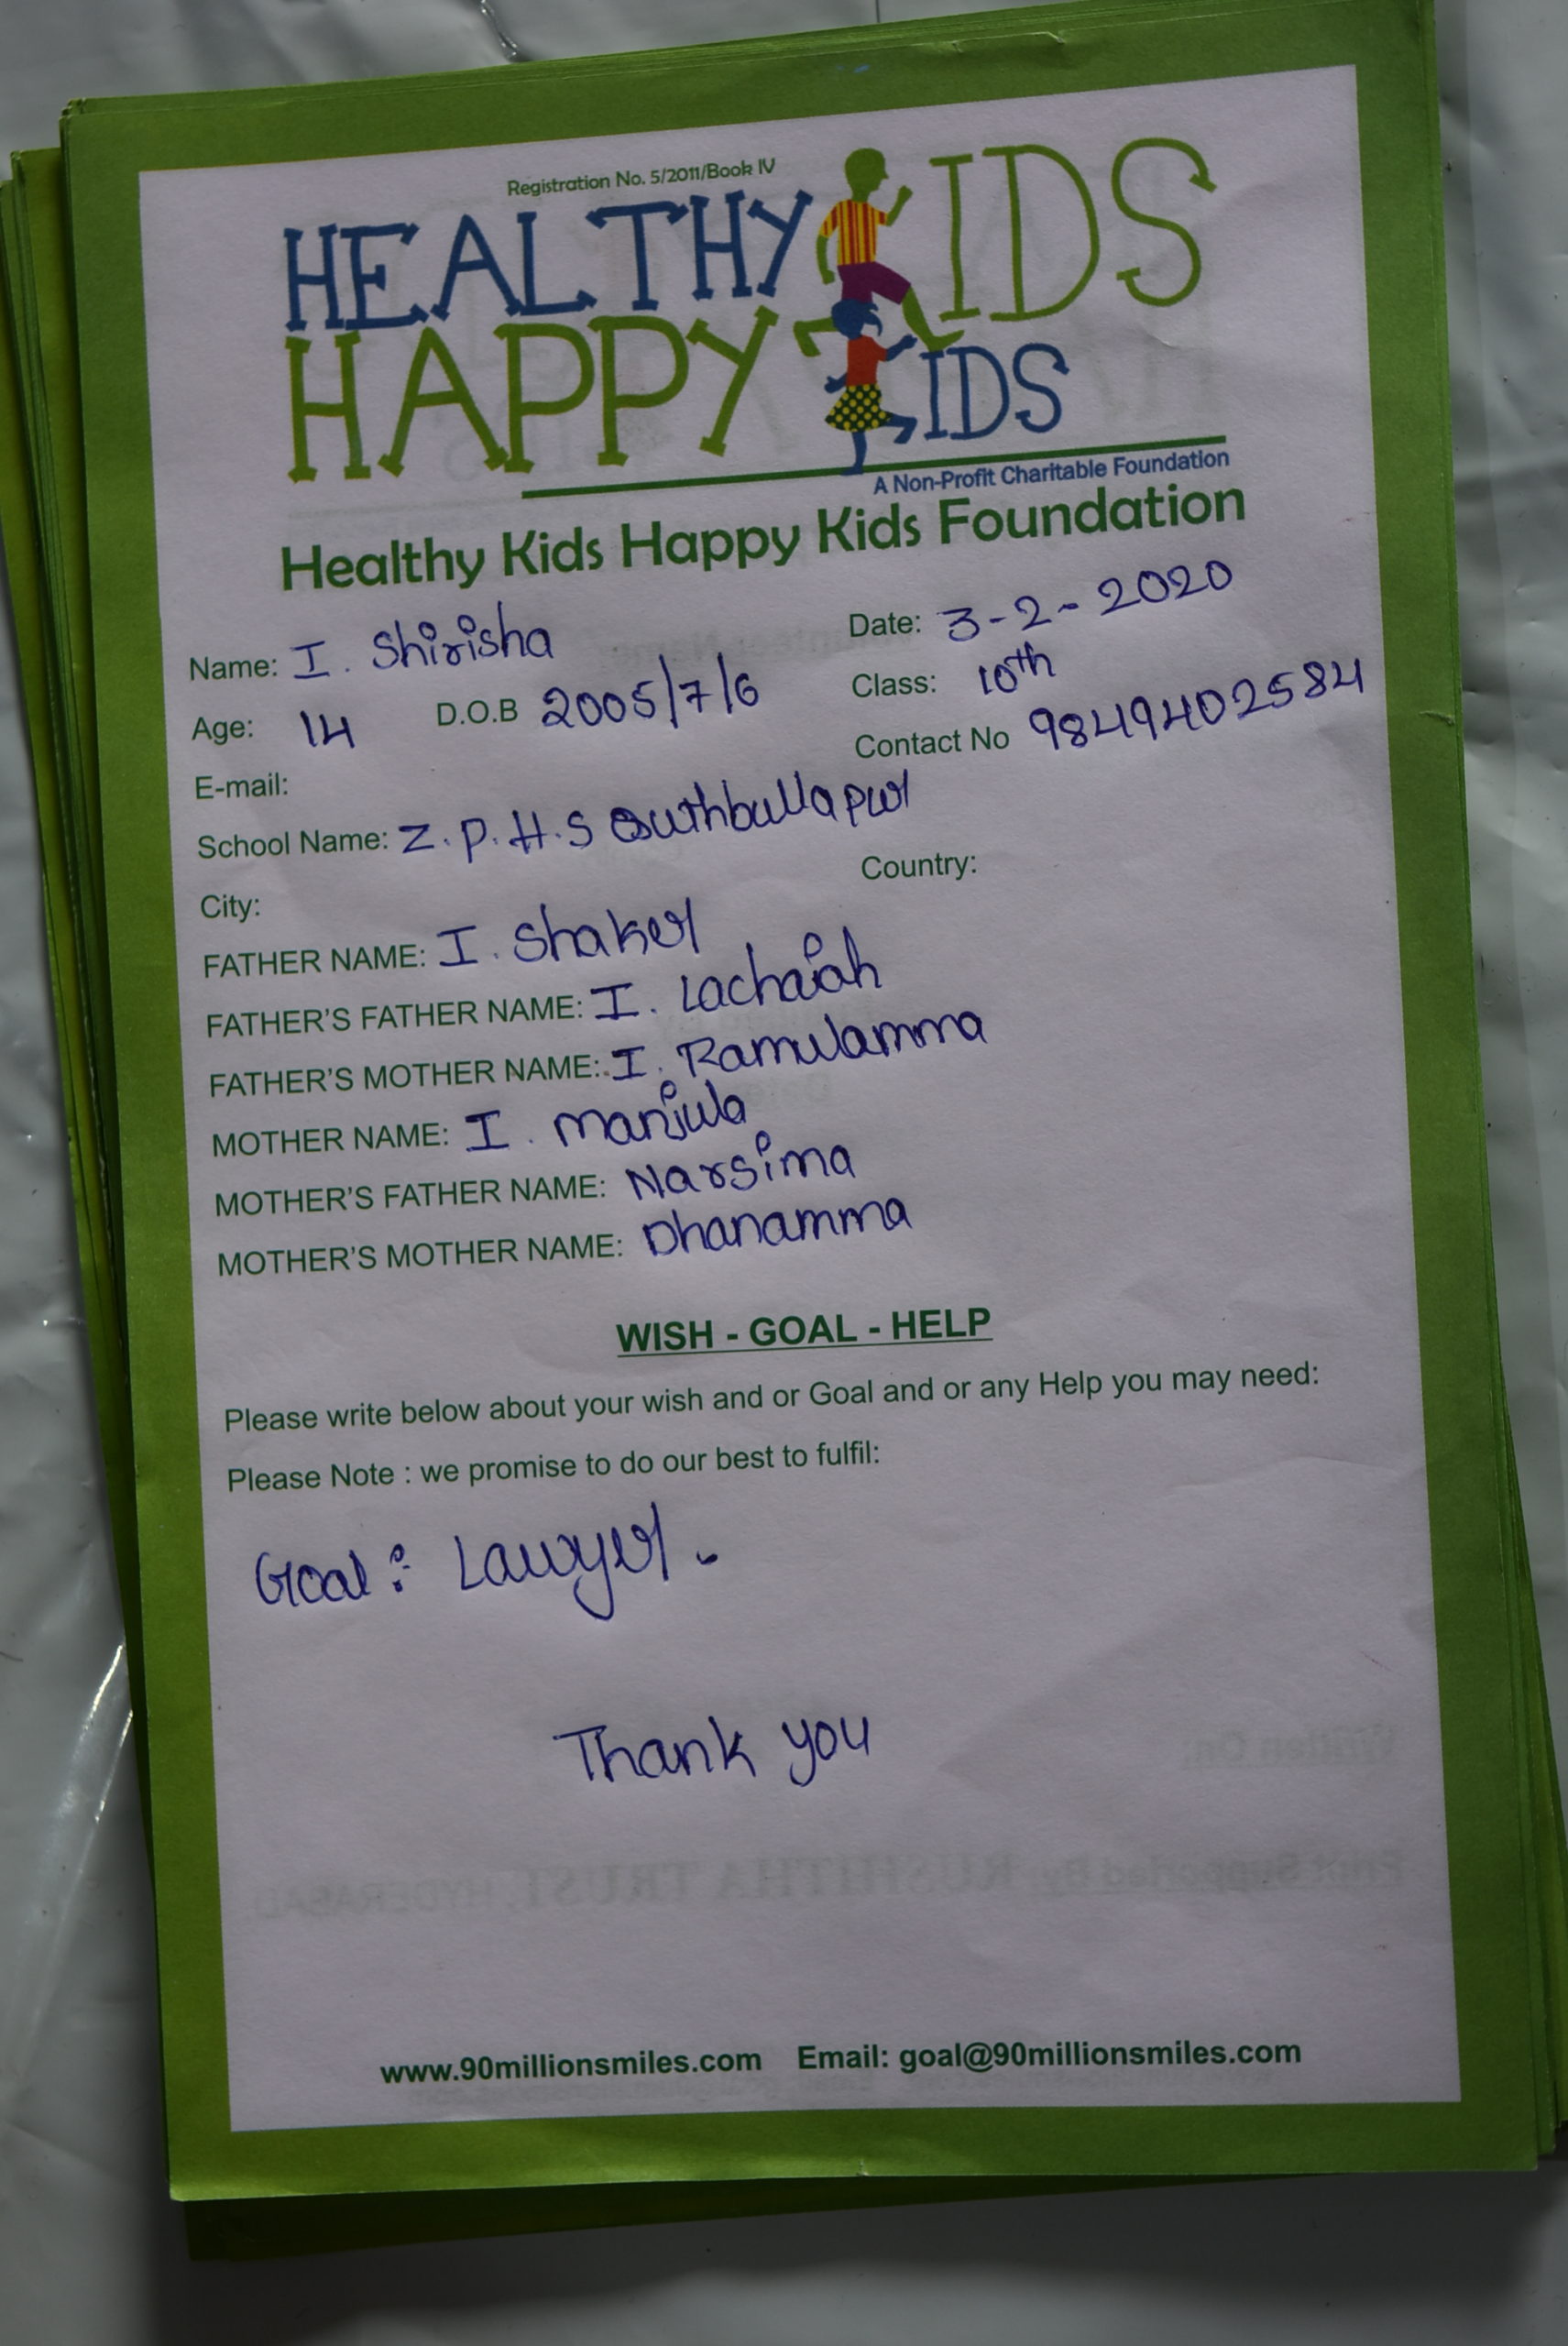 Registration No. 5/2011/Book IV
HEALTHY KIDS
HAPPY KIDS
A Non-Profit Charitable Foundation
Healthy Kids Happy Kids Foundation
Name: I. Shirisha Date: 3-2-2020
Age: 14 D.O.B 2005/7/6 Class: 10th
E-mail: Contact No 9849402584
School Name: Z.P.H.S Quthbullapur
City: Country:
FATHER NAME: I. Shaker
FATHER'S FATHER NAME: I. Lachaiah
FATHER'S MOTHER NAME: I. Ramulamma
MOTHER NAME: I. Manjula
MOTHER'S FATHER NAME: Narsima
MOTHER'S MOTHER NAME: Dhanamma
WISH - GOAL - HELP
Please write below about your wish and or Goal and or any Help you may need:
Please Note : we promise to do our best to fulfil:
Goal : Lawyer.
Thank you
Written On:
Print Supported By: RUSHITHA TRUST, HYDERABAD
www.90millionsmiles.com Email: goal@90millionsmiles.com